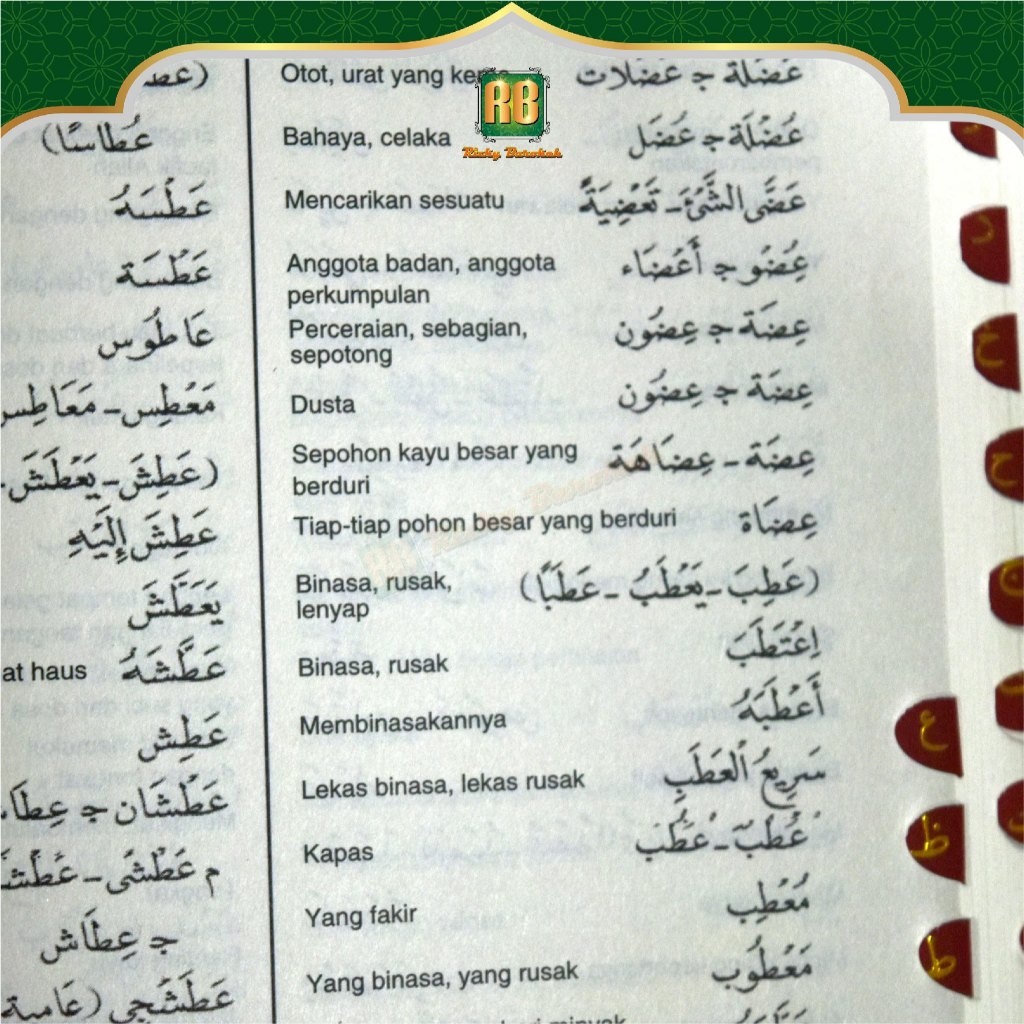 RB
Rizky Barokah
عَضَلَة جـ عَضَلَات Otot, urat yang
عُضْلَة جـ عُضَل Bahaya, celaka
عَضَّى الشَّيْءَ - تَعْضِيَةً Mencarikan sesuatu
عُِضْو جـ أَعْضَاء Anggota badan, anggota
perkumpulan
عِضَة جـ عِضُون Perceraian, sebagian,
sepotong
عِضَة جـ عِضُون Dusta
عِضَة - عِضَاهَة Sepohon kayu besar yang
berduri
عِضَاة Tiap-tiap pohon besar yang berduri
(عَطِبَ - يَعْطَبُ - عَطَبًا) Binasa, rusak,
lenyap
اِعْتَطَبَ Binasa, rusak
أَعْطَبَهُ Membinasakannya
سَرِيعُ الْعَطَبِ Lekas binasa, lekas rusak
عُطْب - عُطُب Kapas
مُعْطِب Yang fakir
مَعْطُوب Yang binasa, yang rusak
عُطَاسًا)
عَطْسَهُ
عَطْسَة
عَاطُوس
مَعْطِس - مَعَاطِس
(عَطِشَ - يَعْطَشُ -
عَطِشَ إِلَيْهِ
يَعَطَّشَ
عَطَّشَهُ at haus
عَطِش
عَطْشَان جـ
م عَطْشَى -
جـ عِطَاش
عَطَشْجِي (عامية
د
خ
ح
ع
ظ
ط